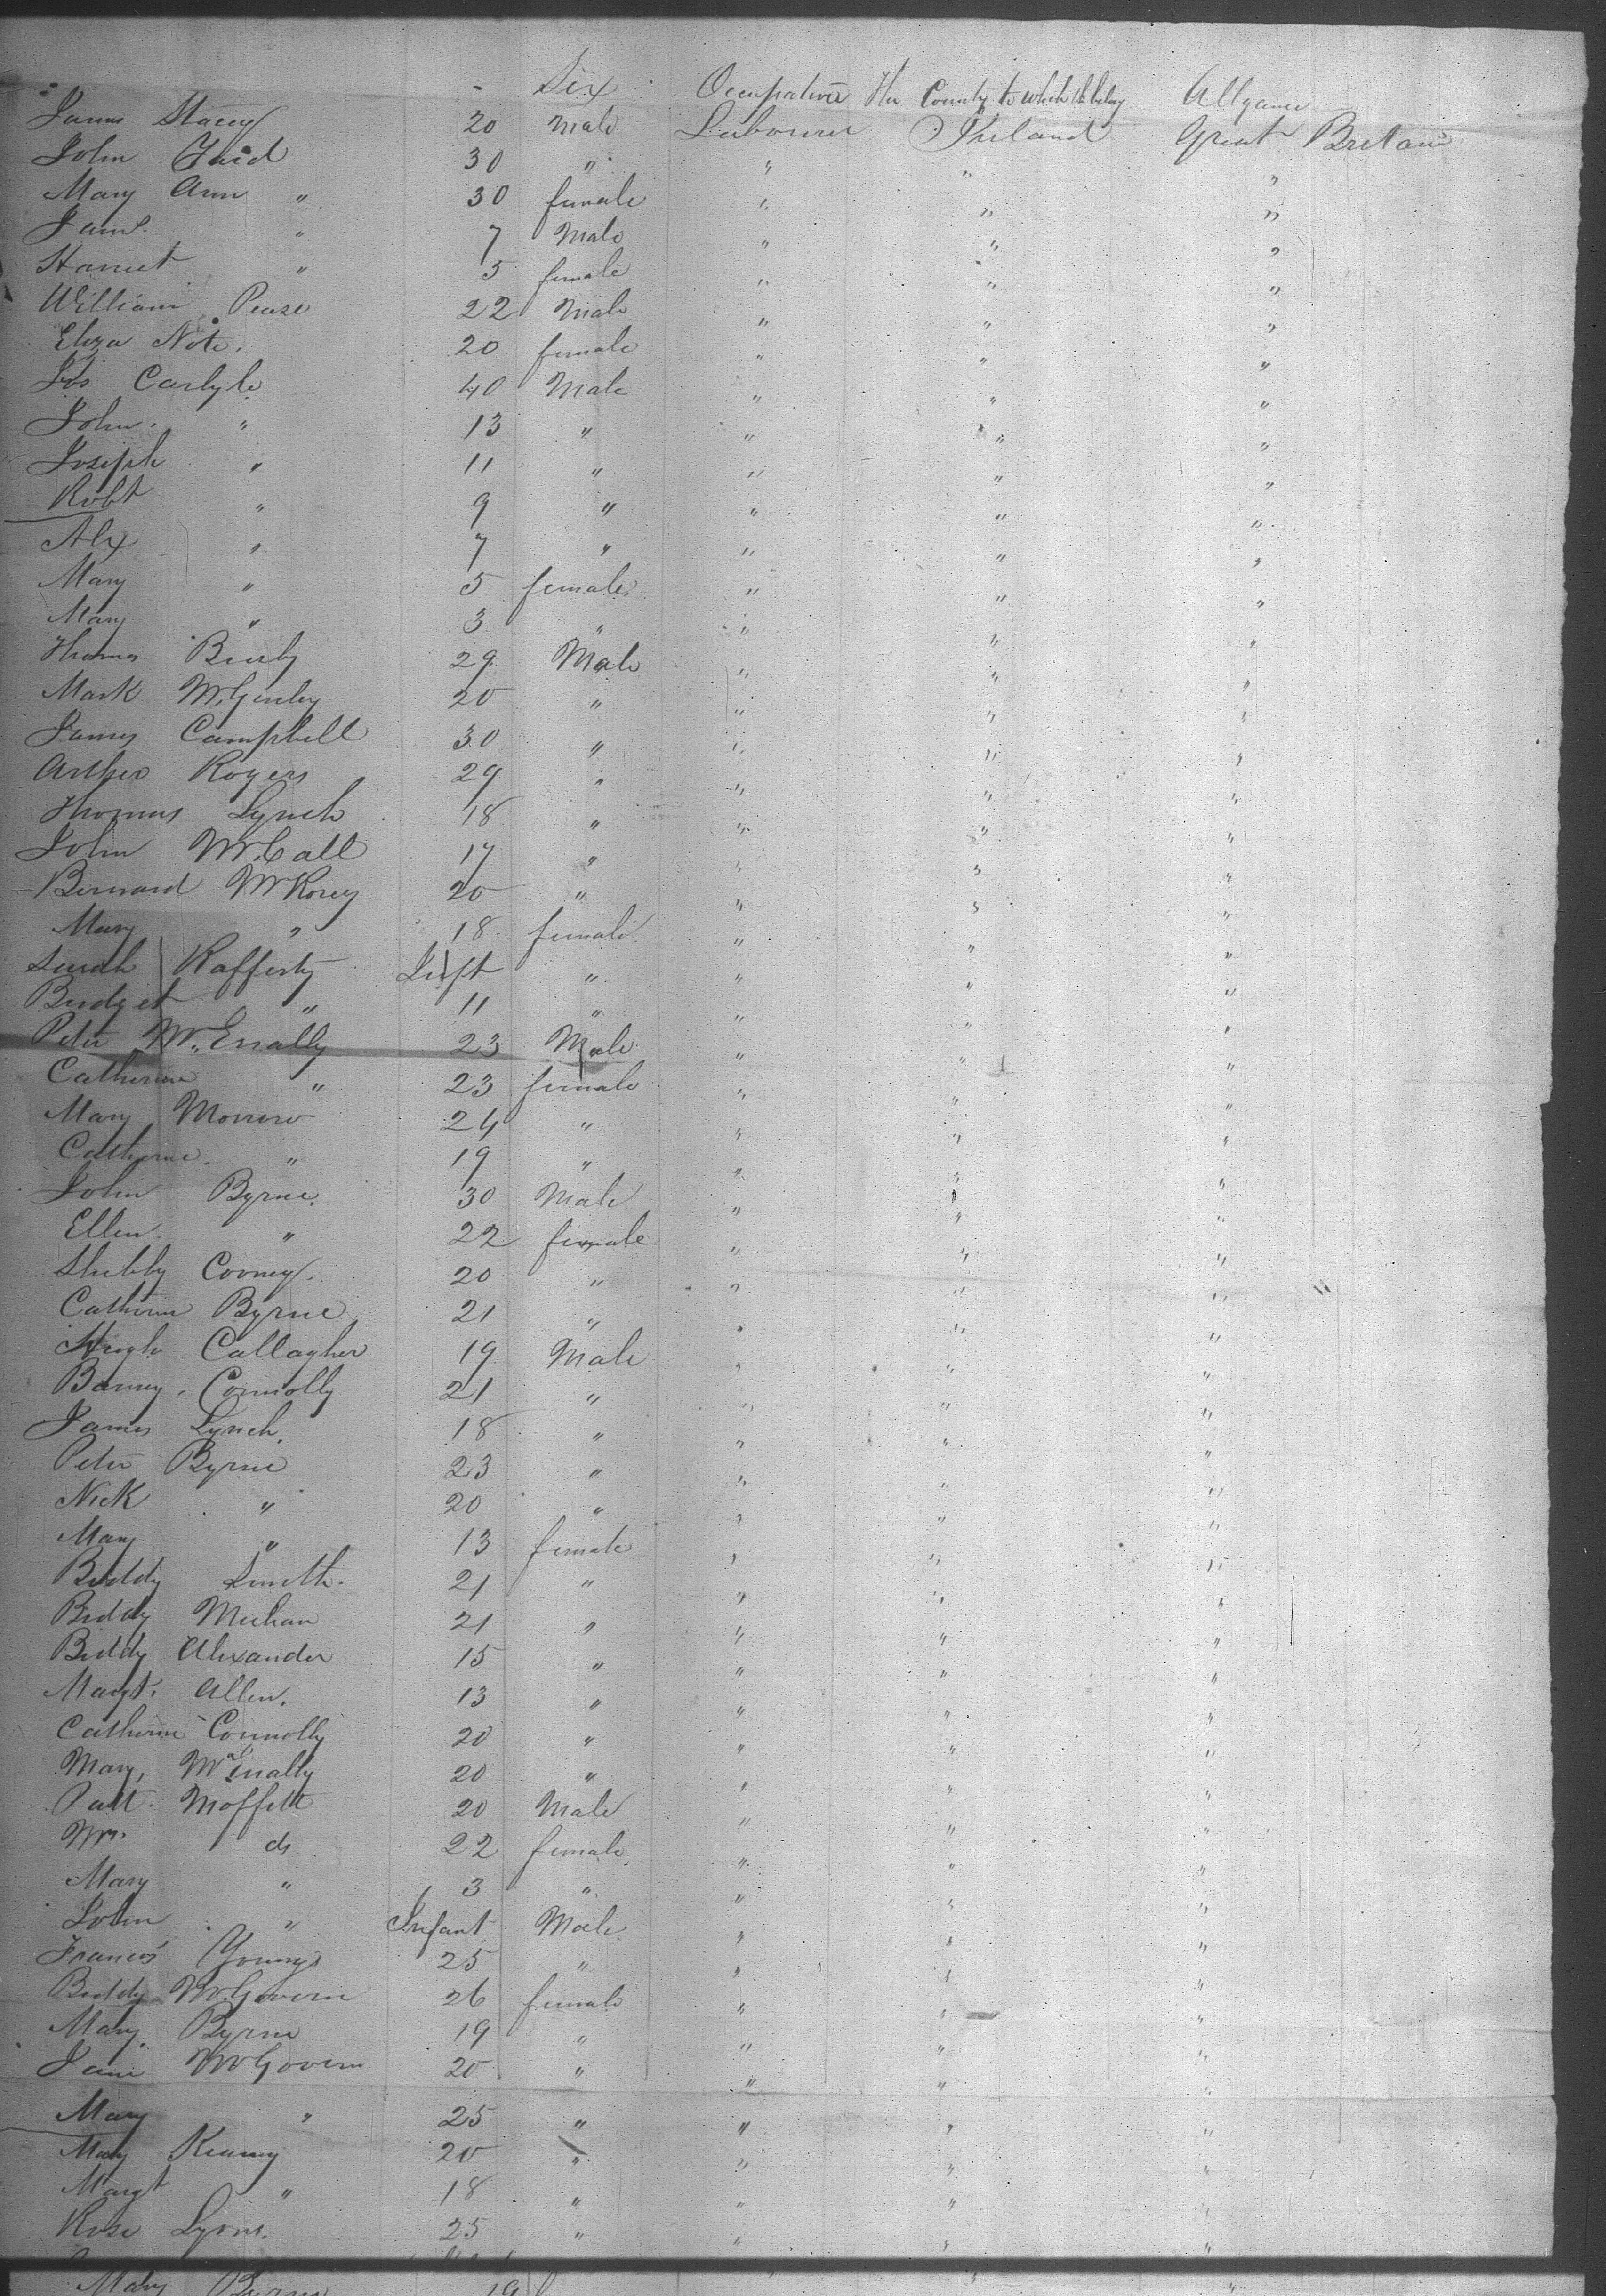 Sex Occupation The County to which the belong Allgance
James Stacey 20 Male Labourer Ireland Great Britain
John 30 " " " "
Mary Ann " 30 female " " "
Jams. " 7 Male " " "
Harriet " 5 female " " "
William Pease 22 Male " " "
Eliza Note. 20 female " " "
Jos Carlyle 40 Male " " "
John. " 13 " " " "
Joseph " 11 " " " "
Robt " 9 " " " "
Alex " 7 " " " "
Mary " 5 female " " "
Mary " 3 " " " "
Thomas 29 Male " " "
Mark McGinley 20 " " " "
James Campbell 30 " " " "
Arther Rogers 29 " " " "
Thomas Lynch 18 " " " "
John McCall 17 " " " "
Bernard 20 " " " "
Mary " 18 female " " "
Sarah Rafferty Left " " " "
Bridget " 11 " " " "
Peter McEnally 23 Male " " "
Catherine " 23 female " " "
Mary Morrow 24 " " " "
Catherine " 19 " " " "
John Byrne. 30 Male " " "
Ellen. " 22 female " " "
Cooney. 20 " " " "
Catherine Byrne 21 " " " "
Hugh Callagher 19 Male " " "
Barney Connolly 21 " " " "
James Lynch. 18 " " " "
Peter Byrne 23 " " " "
Nick " 20 " " " "
Mary " 13 female " " "
Biddy Smith. 21 " " " "
Biddy Meehan 21 " " " "
Biddy Alexander 15 " " " "
Margt. Allen. 13 " " " "
Catherine Connolly 20 " " " "
Mary, McEnally 20 " " " "
Patt. Moffett 20 Male " " "
Mrs. do 22 female " " "
Mary " 3 " " " "
John " Infant Male " " "
Francis Young 25 " " " "
Biddy McGovern 26 female " " "
Mary. Byrne 19 " " " "
Jane McGovern 20 " " " "
Mary " 25 " " " "
Mary Kearney 20 " " " "
Margt " 18 " " " "
Rose Lyons. 25 " " " "
Mary Byrne 19